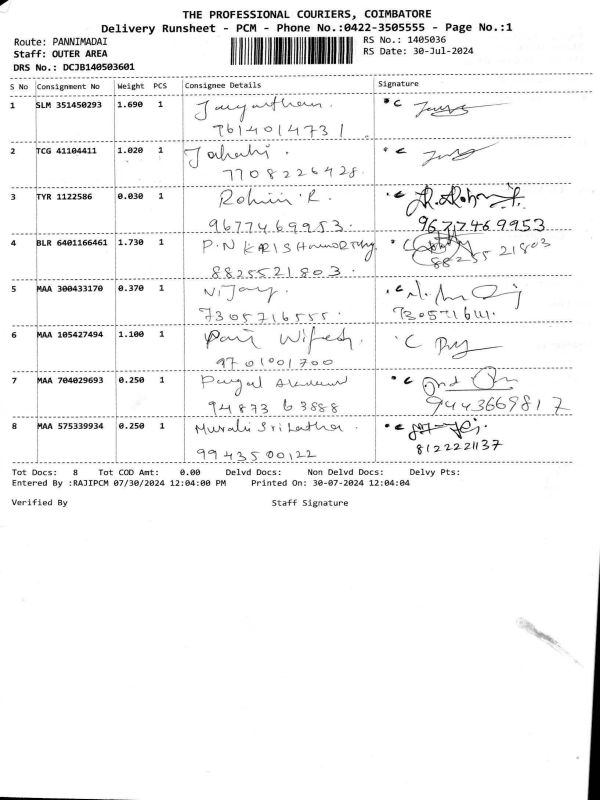 THE PROFESSIONAL COURIERS, COIMBATORE
Delivery Runsheet - PCM - Phone No.:0422-3505555 - Page No.:1
Route: PANNIMADAI RS No.: 1405036
Staff: OUTER AREA RS Date: 30-Jul-2024
DRS No.: DCJB140503601
S No Consignment No Weight PCS Consignee Details Signature
1 SLM 351450293 1.690 1 C
9614014731
2 TCG 41104411 1.020 1 C
7708226428.
3 TYR 1122586 0.030 1 Rohini.R. C
9677469953. 9677469953
4 BLR 6401166461 1.730 1 P.N KRISHNAMOORTHY C
8825521803. 8825521803
5 MAA 300433170 0.370 1 C
7305716555.
6 MAA 105427494 1.100 1 C
9701001700
7 MAA 704029693 0.250 1 C
94873 63888 9443669817
8 MAA 575339934 0.250 1 Murali Srilatha. C
9943500122 8122221137
Tot Docs: 8 Tot COD Amt: 0.00 Delvd Docs: Non Delvd Docs: Delvy Pts:
Entered By :RAJIPCM 07/30/2024 12:04:00 PM Printed On: 30-07-2024 12:04:04
Verified By Staff Signature